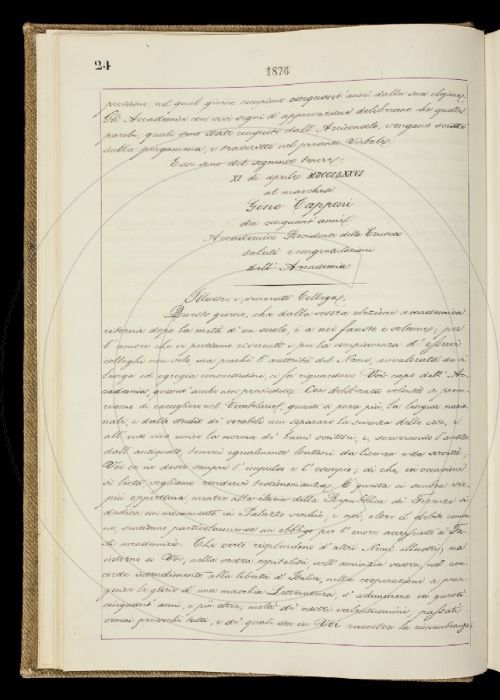 24
1876
pressione, nel qual giorno compiono cinquant'anni dalla sua elezione.
Gli Accademici con vivi segni di approvazione deliberano che queste
parole, quali sono state composte dall'Arciconsolo, vengano scritte
sulla pergamena, e trascritte nel presente Verbale.
Esse sono del seguente tenore:
XI di aprile MDCCCLXXVI
al marchese
Gino Capponi
da cinquant'anni
Accademico Residente della Crusca
saluti e congratulazioni
dell'Accademia
Illustre e venerato Collega,
Questo giorno, che dalla vostra elezione accademica
ritorna dopo la metà d'un secolo, è a noi fausto e solenne; per
l'amore che vi portiamo riverente e per la compiacenza d'esservi
colleghi non solo, ma perchè l'autorità del Nome, avvalorata da sì
lunga ed egregia consuetudine, ci fa riguardare Voi capo dell'Ac-
cademia, quand'anche non presidente. Con deliberata volontà
di raccogliere nel Vocabolario, quanto si possa più la lingua nazio-
nale, e dallo studio de' vocaboli non separare la scienza delle cose, e
all'uso vivo unire la norma de' buoni scrittori, e, sceverando l'antico
dall'antiquato, tenersi egualmente lontani da licenza e da
Voi ce ne deste sempre l'impulso e l'esempio; di che in occasione
sì lieta vogliamo rendervi testimonianza. E questa ci sembra vie-
più opportuna, mentre allo storico della Repubblica di Firenze si
dedica un monumento in Palazzo vecchio; e noi, oltre il debito comu-
ne, sentiamo particolarmente un obbligo per l'onore accresciuto a' Fa-
sti accademici. Che certo risplendono d'altri Nomi illustri; ma
intorno a Voi, nella vostra ospitalità, nell'amicizia vostra, nel con-
corde intendimento alla libertà d'Italia, nella cooperazione a prose-
guire le glorie d'una maschia Letteratura, s'adunarono in questi
cinquant'anni, e più oltre, molti de' nostri valentuomini, passati
ormai pressochè tutti, e de' quali sta in Voi raccolta la rimembranza,